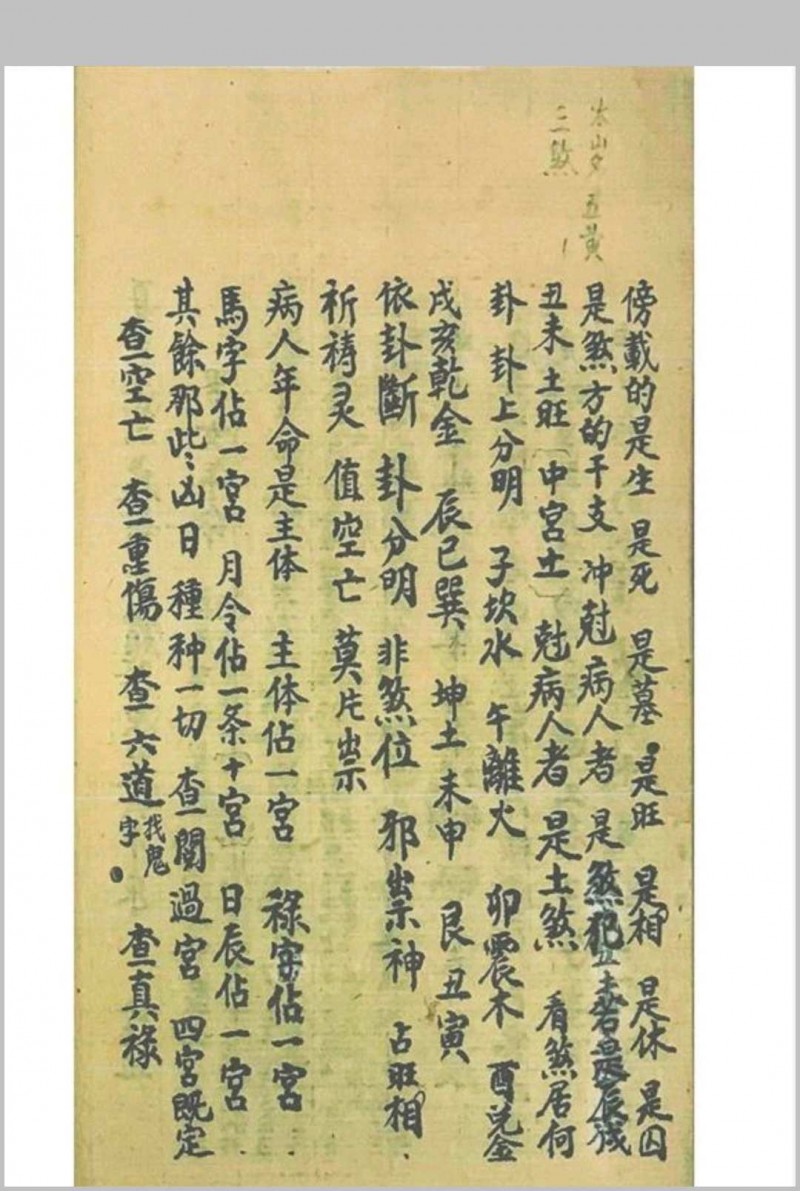 五黄
三煞
傍載的是生 是死 是墓 是旺 是相 是休 是囚
是煞方的干支 冲尅病人者 是煞犯
丑未土旺〔中宮土〕尅病人者 是土煞 看煞居何
卦 卦上分明 子坎水 午離火 卯震木 酉兑金
戌亥乾金 辰巳巽 坤土未申 艮丑寅
依卦斷 卦分明 非煞位 邪祟神 占旺相
祈祷灵 值空亡 莫片祟
病人年命是主体 主体佔一宮 祿字佔一宮
馬字佔一宮 月令佔一条〔十宮〕 日辰佔一宮
其餘那些凶日 種种一切 查関過宮 四宮既定
查空亡 查重傷 查六道 找鬼字 查真祿